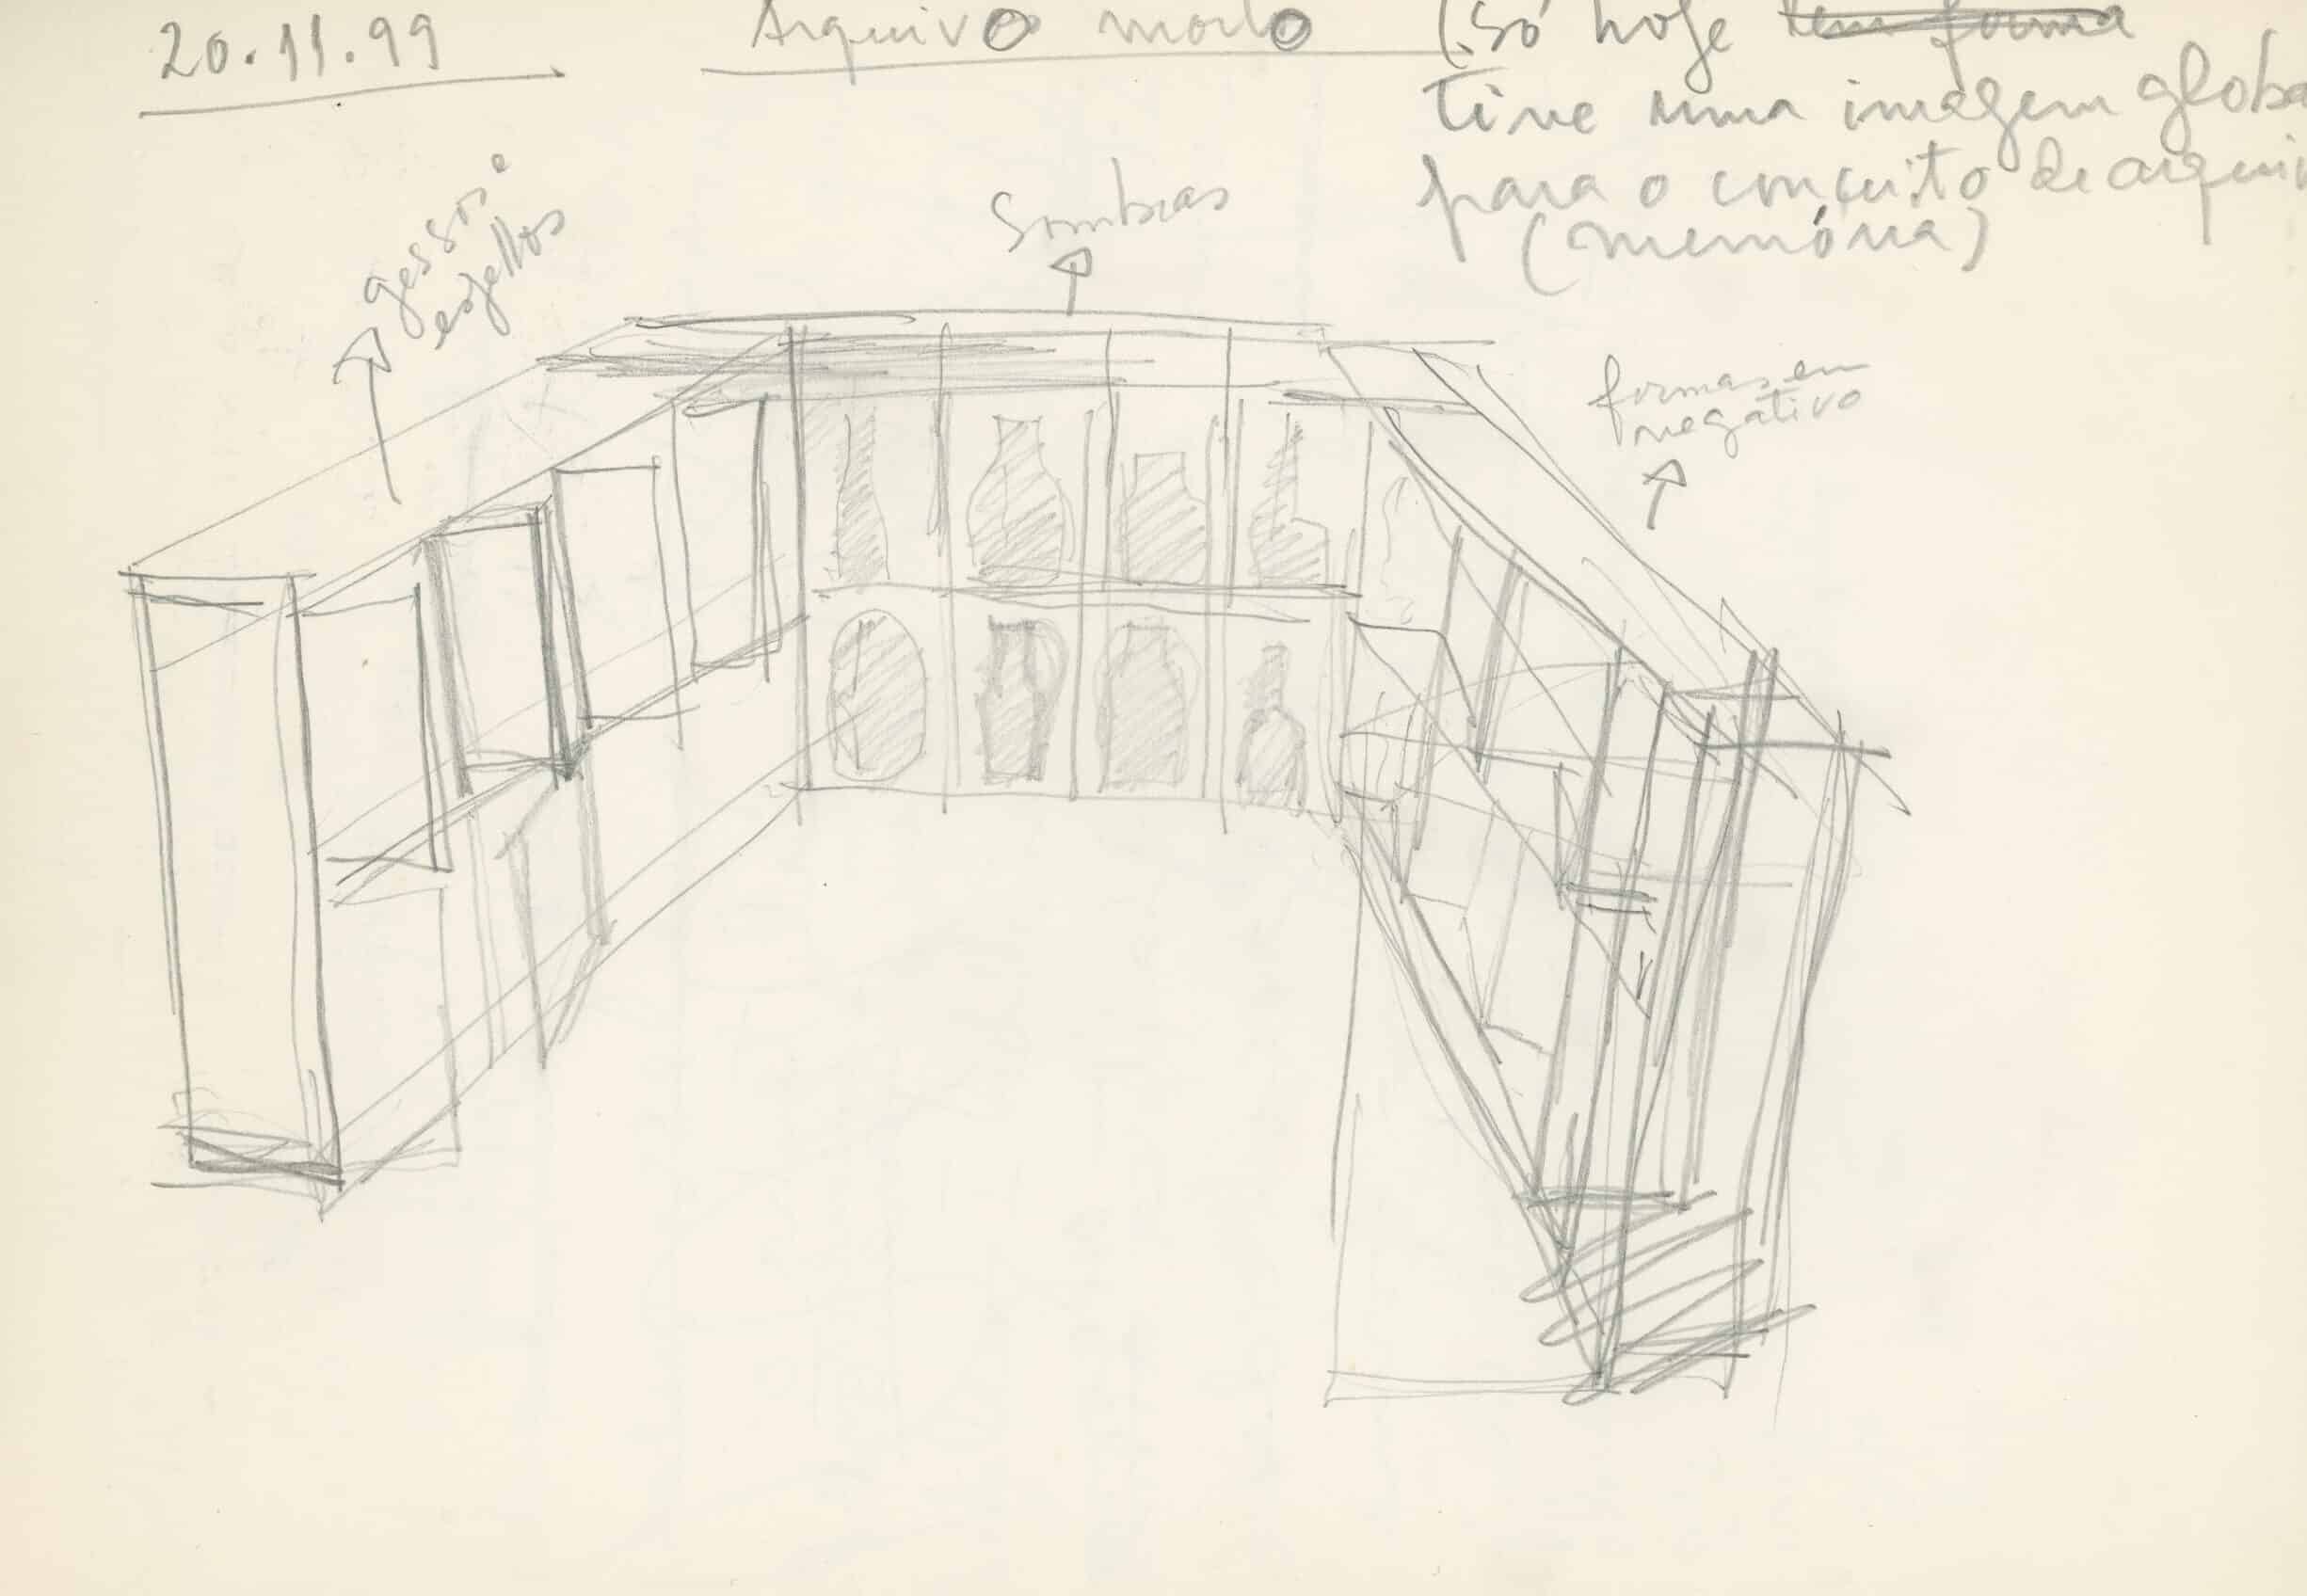 20.11.99
Arquivo morto
(só hoje tem forma
tive uma imagem globa
para o conceito de arquiv
(memória)
gessos e
espelhos
Sombras
formas em
negativo